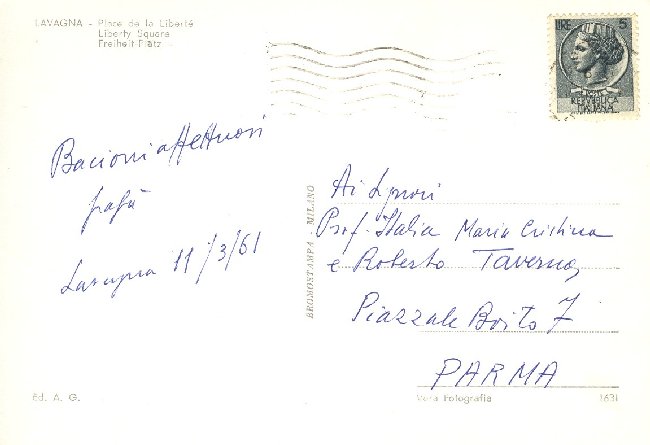 LAVAGNA - Place de la Liberté
Liberty Square
Freiheit Platz
LIRE 5
REPUBBLICA
ITALIANA
Bacioni affettuosi
papà
Lavagna 11/3/61
BROMOSTAMPA MILANO
Ai Signori
Prof. Italia Maria Cristina
e Roberto Taverna
Piazzale Boito 7
PARMA
Ed. A. G.
Vera Fotografia
1631